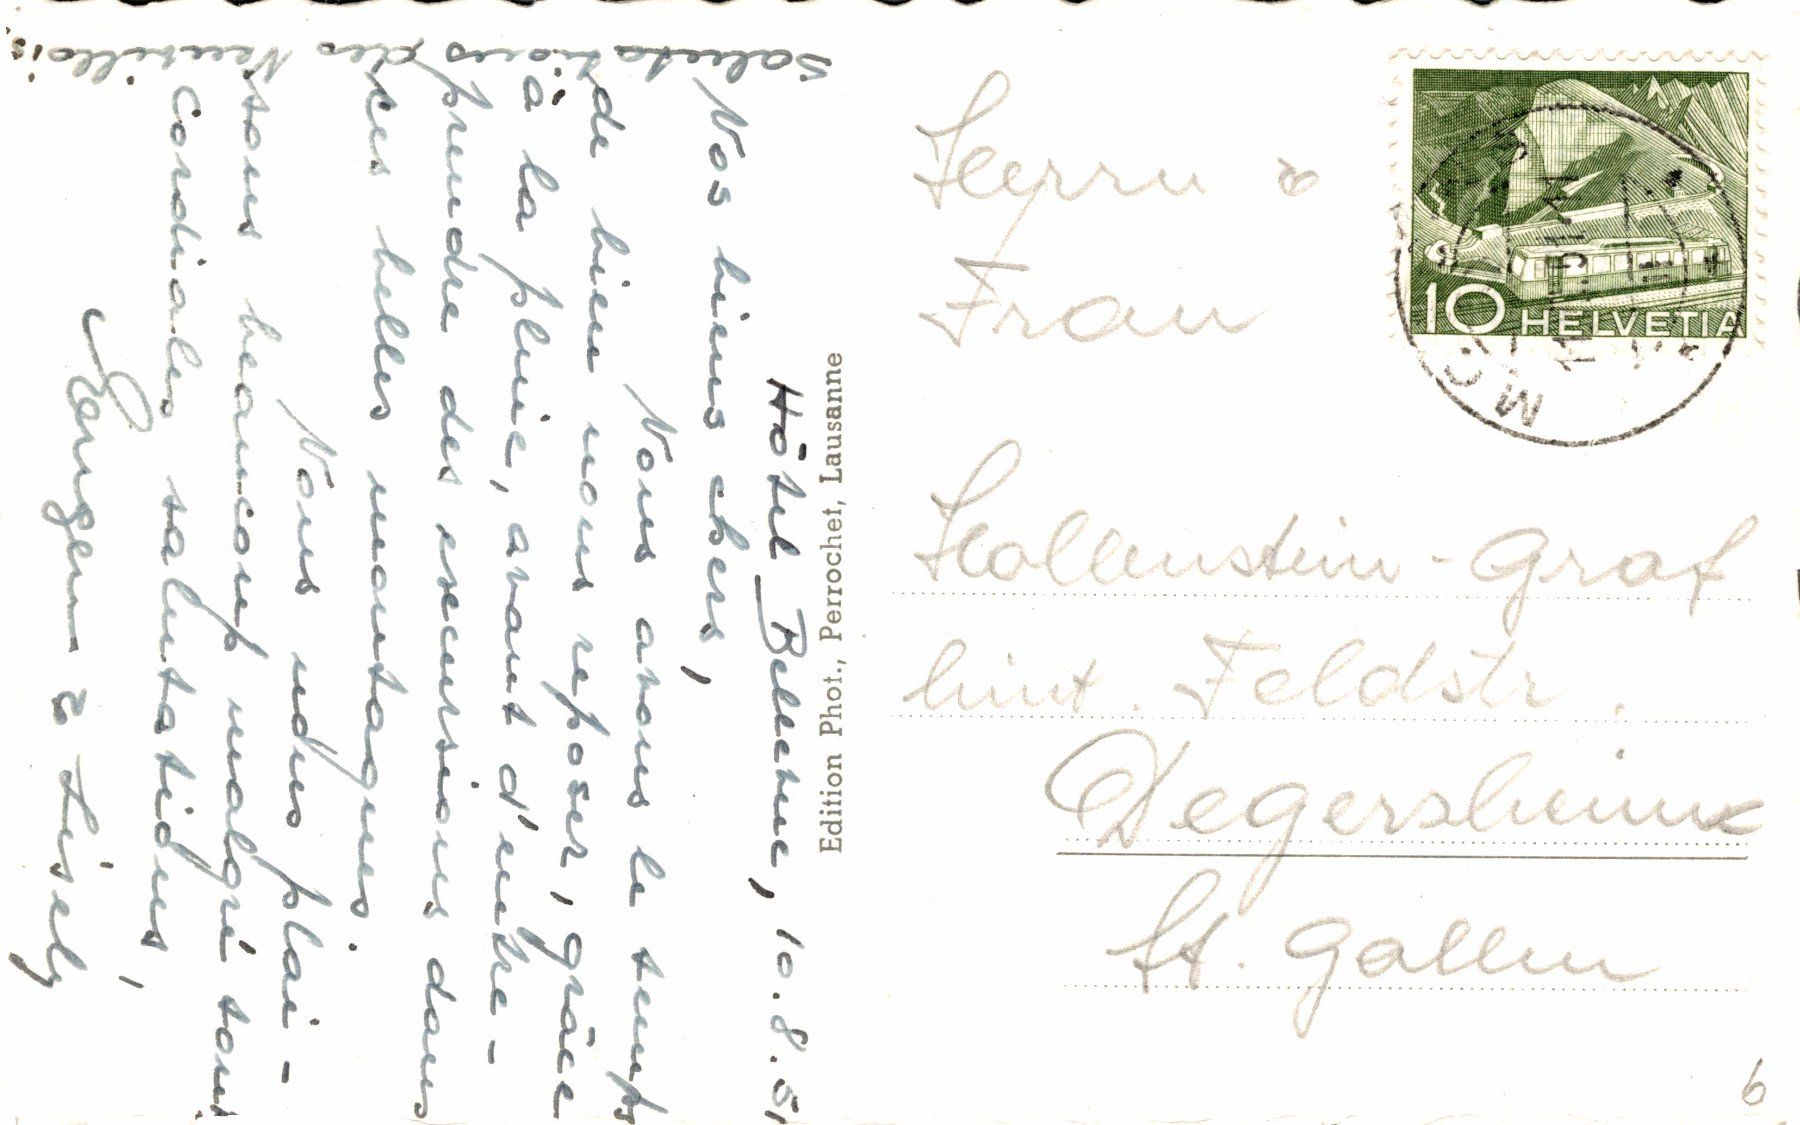 Hôtel Bellevue, 10.8.51
Nos biens chers,
Nous avons le temps
de bien nous reposer, grâce
à la pluie, avant d'entre-
prendre des excursions dans
ces belles montagnes.
Nous nous plai-
sons beaucoup malgré tout
Cordiales salutations,
Jürgen & Lisely
Salutations des Neuvillois
Edition Phot., Perrochet, Lausanne
Herrn &
Frau
Hollenstein-Graf
hint. Feldstr.
Degersheim
St. Gallen
10 HELVETIA
6